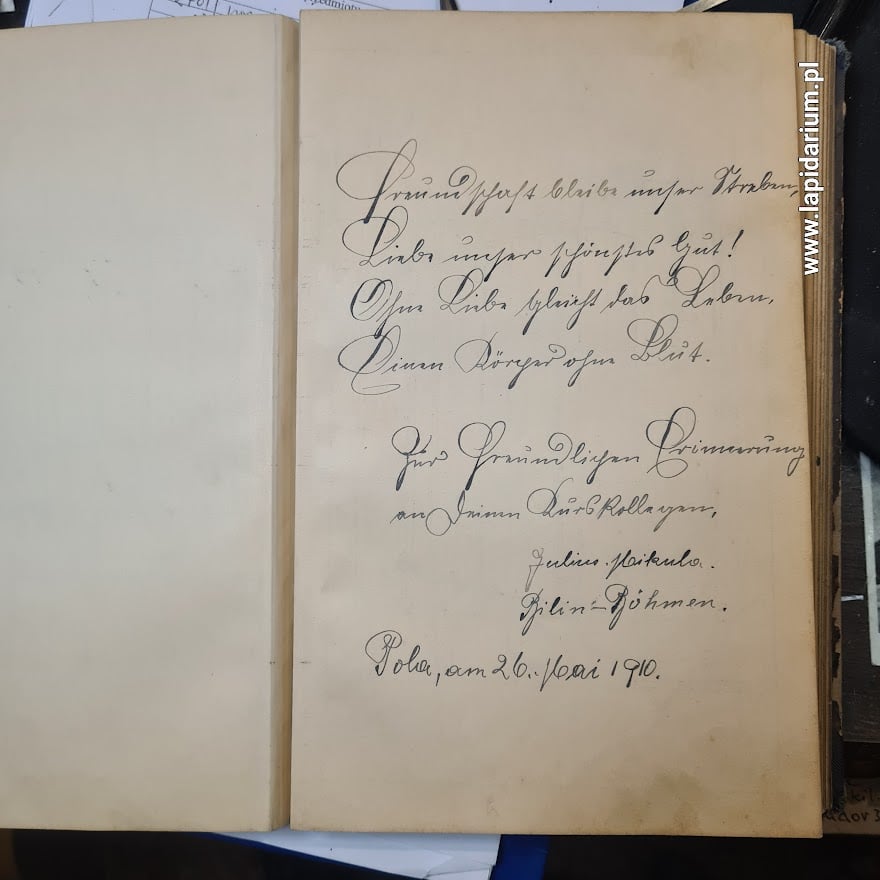 Freundschaft bleibe unser Streben,
Liebe unser schönstes Gut!
Ohne Liebe gleicht das Leben,
Einen Körper ohne Blut.
Zur Freundlichen Erinnerung
an Deinen Kurskollegen,
Julius Mikula.
Bilin-Böhmen.
Pola, am 26. Mai 1910.
www.lapidarium.pl